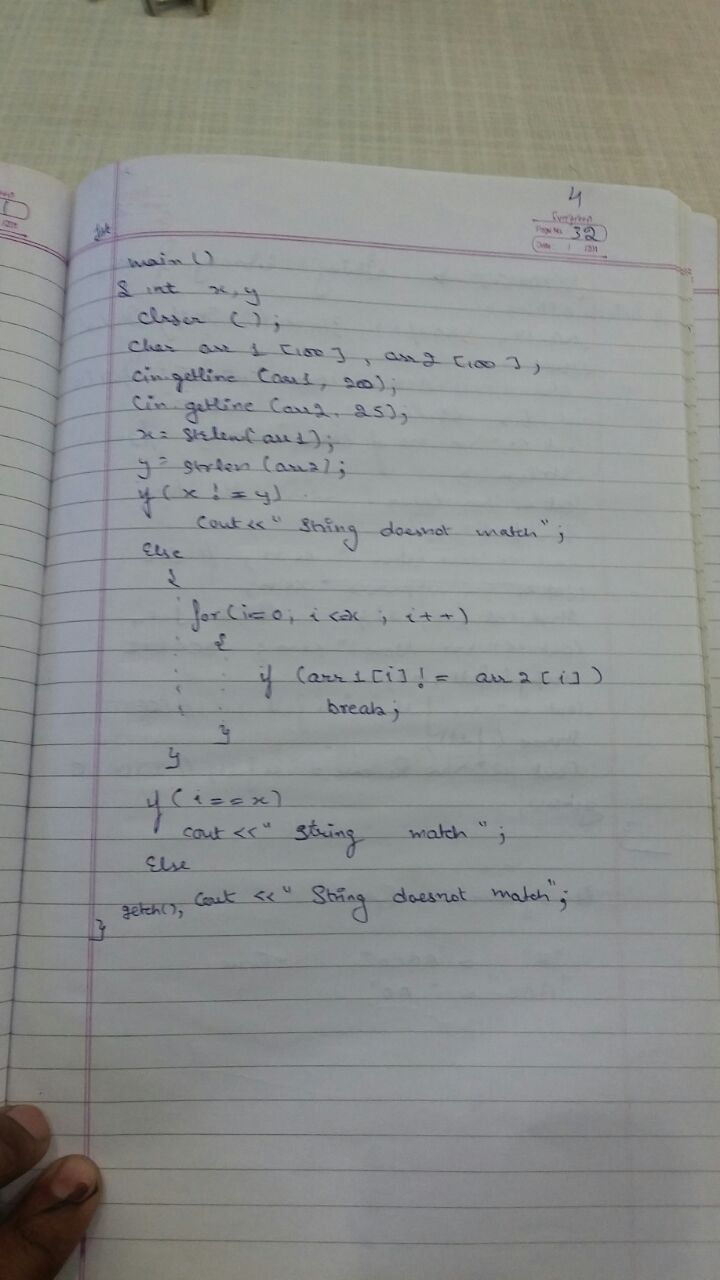 4
Page No. 32
Date
main ()
{ int x, y
clrscr ();
char arr 1 [100], arr 2 [100],
cin getline (arr1, 20);
Cin getline (arr2, 25);
x = strlen(arr1);
y = strlen (arr2);
if (x != y)
cout << "String doesnot match";
Else
{
for (i=0; i<=x ; i++)
{
if (arr 1 [i] != arr 2 [i])
break;
}
}
if (i==x)
cout << "string match";
Else
getch(); Cout << "String doesnot match";
}